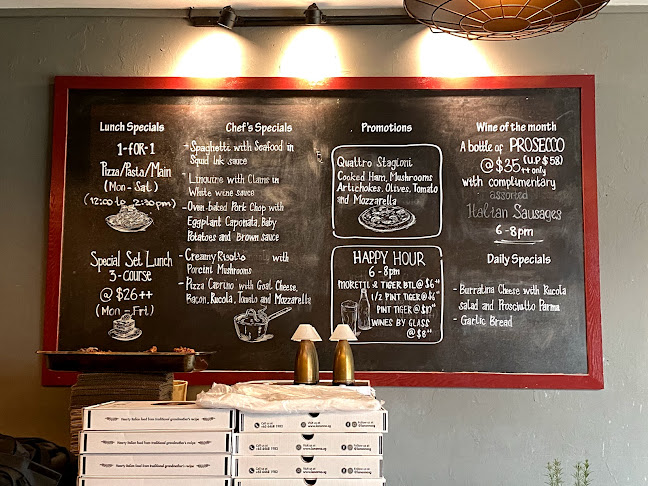 Lunch Specials
1-FOR-1
Pizza/Pasta/Main
(Mon - Sat)
(12:00 to 2:30pm)
Special Set Lunch
3-course
@ $26++
(Mon - Fri)
Chef's Specials
- Spaghetti with Seafood in
Squid Ink sauce
- Linguine with Clams in
White wine sauce
- Oven-baked Pork Chop with
Eggplant Caponata, Baby
Potatoes and Brown sauce
- Creamy Risotto with
Porcini Mushrooms
- Pizza Caprino with Goat Cheese,
Bacon, Rucola, Tomato and Mozzarella
Promotions
Quattro Stagioni
Cooked Ham, Mushrooms
Artichokes, Olives, Tomato
and Mozzarella
HAPPY HOUR
6 - 8pm
MORETTI & TIGER BTL @ $6++
1/2 PINT TIGER @ $6++
PINT TIGER @ $10++
WINES BY GLASS
@ $8++
Wine of the month
A bottle of PROSECCO
@ $35++ only (U.P $58)
with complimentary
assorted
Italian Sausages
6 - 8pm
Daily Specials
- Burratina Cheese with Rucola
salad and Proschutto Parma
- Garlic Bread
Hearty Italian food from traditional grandmother's recipe
Hearty Italian food from traditional grandmother's recipe
Hearty Italian food from traditional grandmother's recipe
Call us at
Visit us at
Follow us at